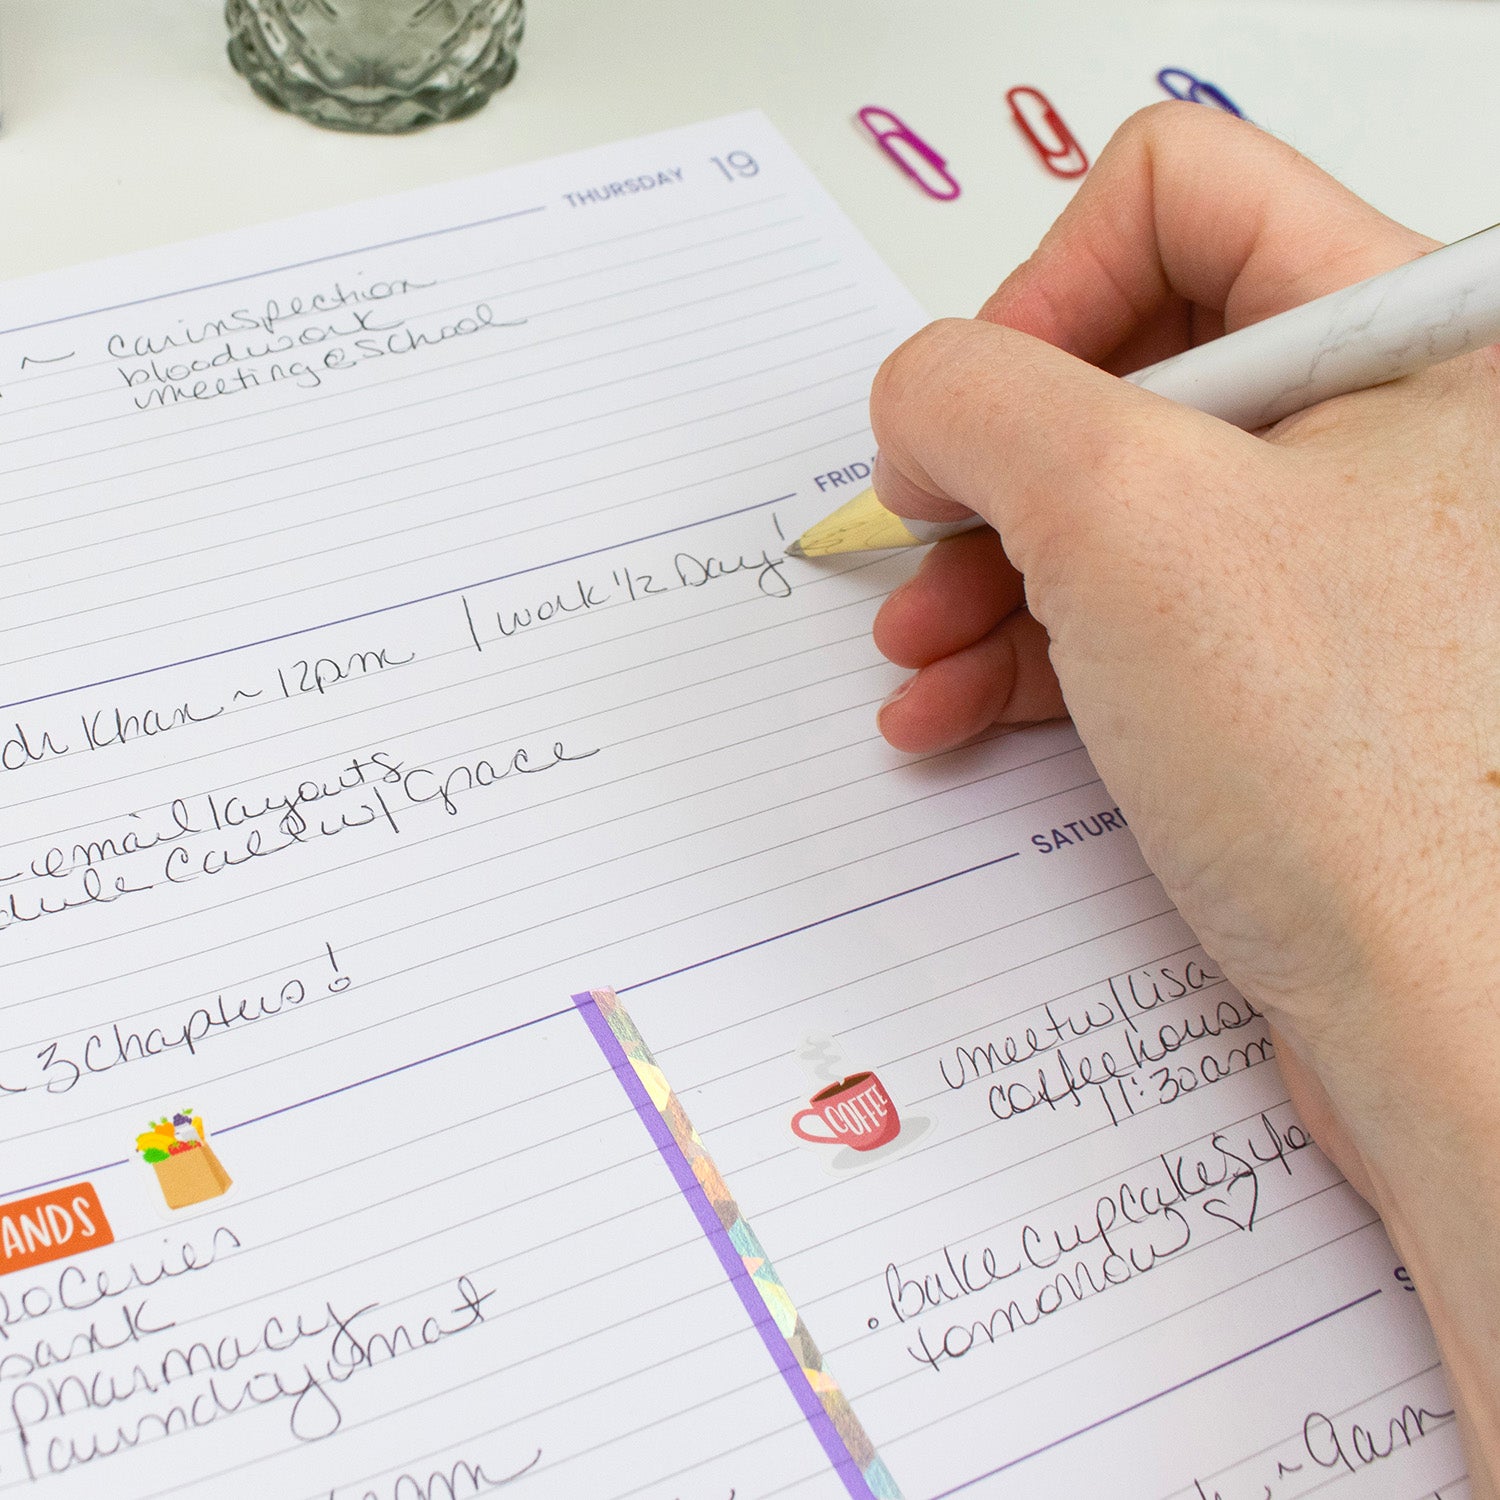 THURSDAY 19
~ car inspection
bloodwork
meeting @ school
FRID
dr Khan ~ 12pm / work 1/2 Day!
email layouts
dule Call w/ Grace
3 Chapters!
SATUR
ANDS
roceries
bank
pharmacy
laundromat
COFFEE
meet w/ Lisa
coffee house
11:30am
. Bake Cupcakes 4
tomorrow ♡
S
~ 9am